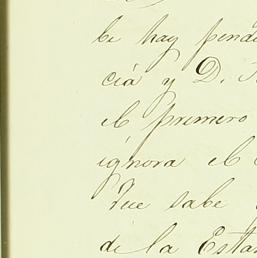 be hay pend
cia y D.
el primero
ignora el
Que sabe
de la Esta